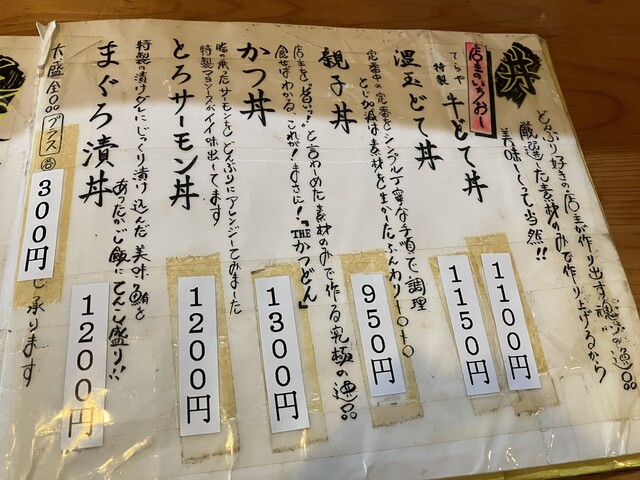 丼
どんぶり好きの店主が作り出す
厳選した素材のみで作り上げるから
美味しくって当然!!
店主のいちおし
てらや
特製 牛どて丼 1100円
温玉どて丼 1150円
定番中の定番をシンプル丁寧な手順で調理
とじ加減は素材を生かしたふんわりトロトロ
親子丼 950円
店主を"旨い"と言わしめた素材のみで作る究極の逸品
食せばわかるこれが!まさに!『THEかつどん』
かつ丼 1300円
脂の乗ったサーモンをどんぶりにアレンジしてみました
特製マヨソースがイイ味出してます
とろサーモン丼 1200円
特製の漬けダレにじっくり漬け込んだ美味い鮪を
あったかご飯にてんこ盛り!!
まぐろ漬丼 1200円
大盛全品プラス各300円 承ります